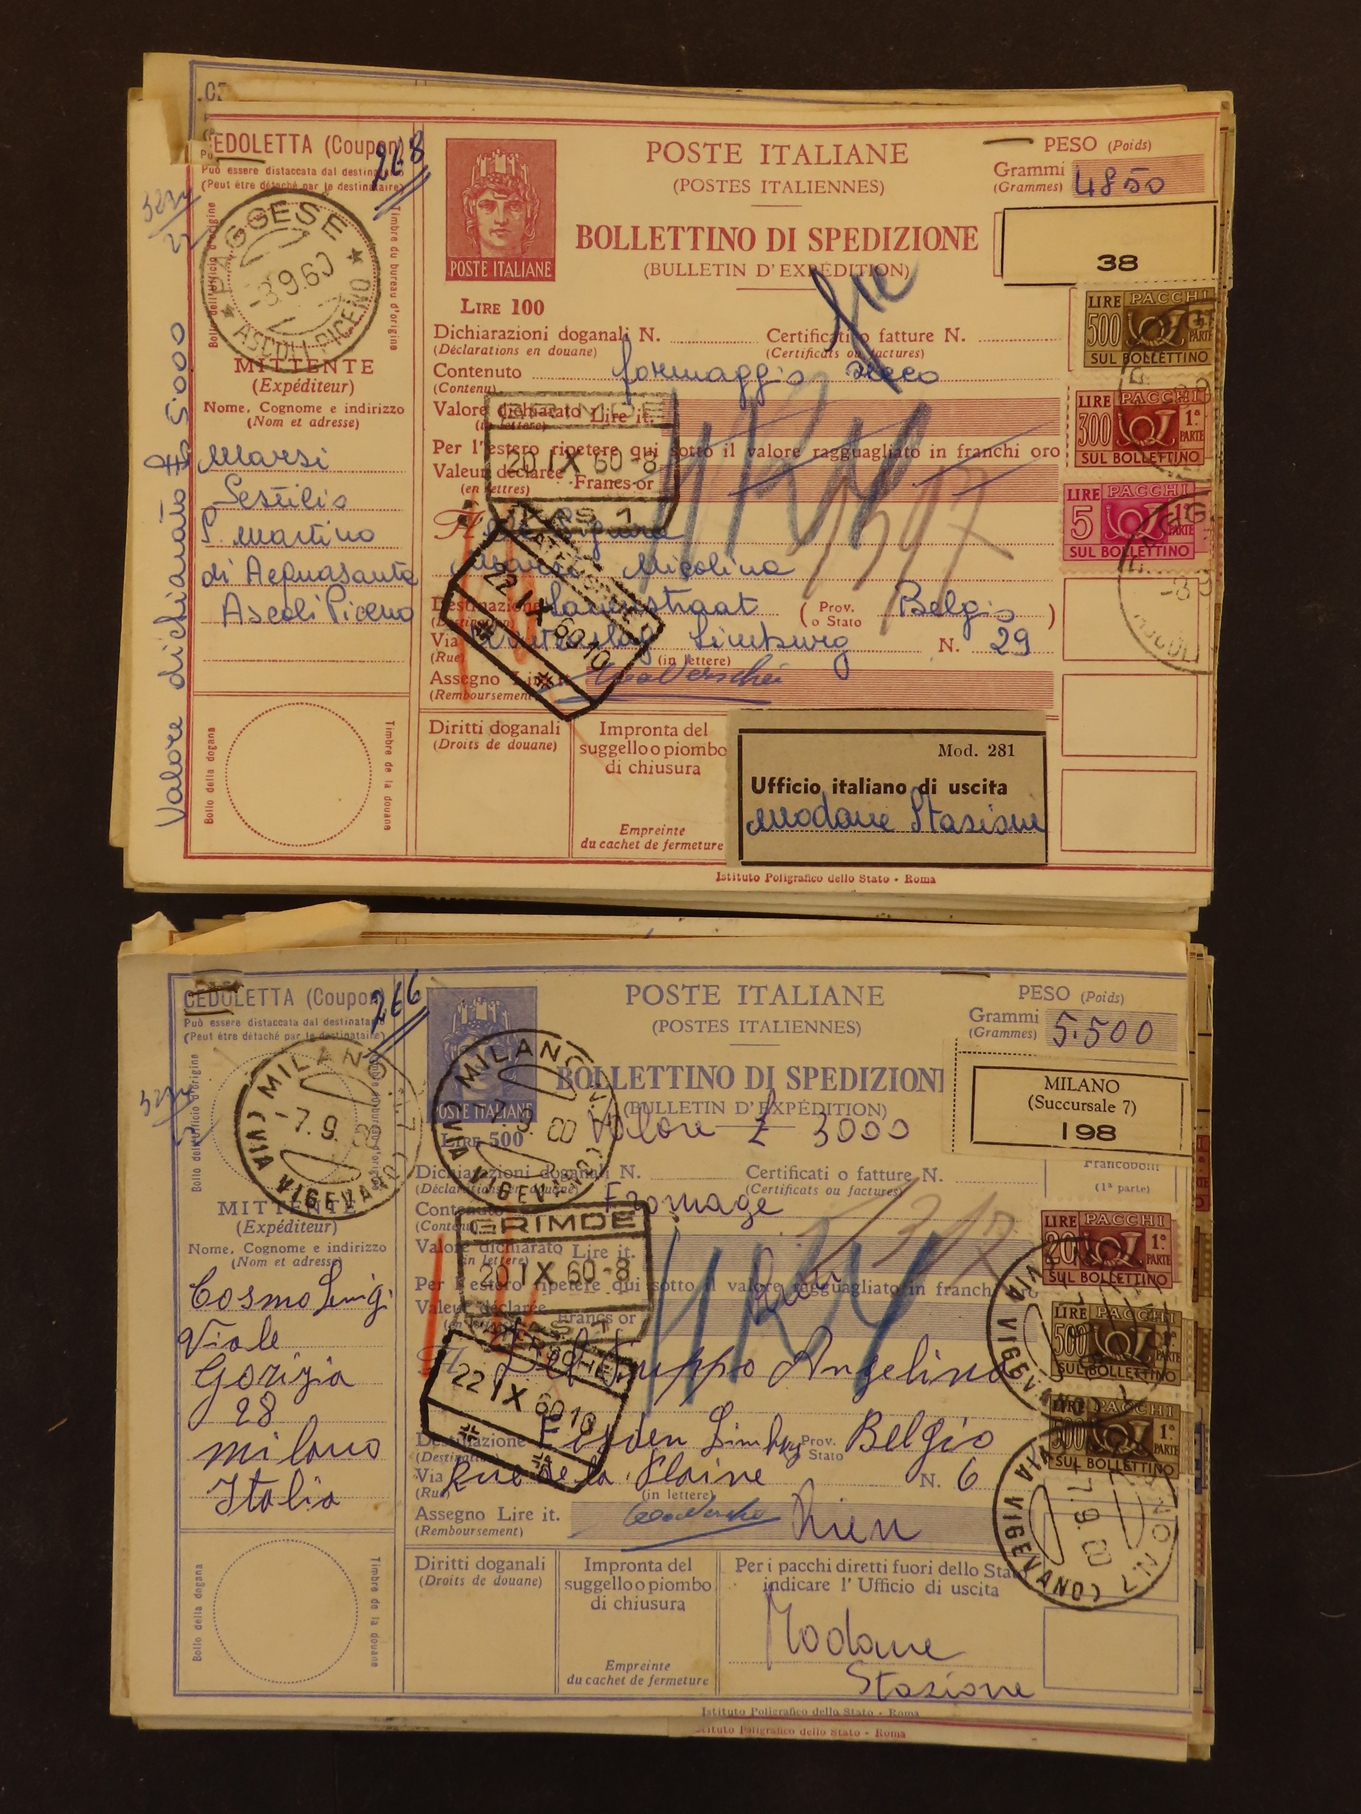 CEDOLETTA (Coupon)
268
Può essere distaccata dal destinatario
(Peut être détaché par le destinataire)
Bollo dell'ufficio d'origine
Timbre du bureau d'origine
PAGGESE
-8.9.60
ASCOLI PICENO
MITTENTE
(Expéditeur)
Nome, Cognome e indirizzo
(Nom et adresse)
Marsi
Sestilio
S. Martino
di Acquasanta
Ascoli Piceno
Valore dichiarato 5.000
Bollo della dogana
Timbre de la douane
POSTE ITALIANE
LIRE 100
POSTE ITALIANE
(POSTES ITALIENNES)
BOLLETTINO DI SPEDIZIONE
(BULLETIN D'EXPÉDITION)
PESO (Poids)
Grammi
(Grammes)
4850
38
Dichiarazioni doganali N.
(Déclarations en douane)
Certificati o fatture N.
(Certificats ou factures)
Contenuto formaggio secco
(Contenu)
Valore dichiarato Lire it.
(in lettere)
Per l'estero ripetere qui sotto il valore ragguagliato in franchi oro
Valeur déclarée Francs or
(en lettres)
20 IX 60-8
22 IX 60 10
1397
Maria Micolina
Destinazione
Prov. o Stato
Belgio
Via Winterslag Limburg N. 29
(Rue)
(in lettere)
Assegno Lire it.
(Remboursement)
Diritti doganali
(Droits de douane)
Impronta del
suggello o piombo
di chiusura
Empreinte
du cachet de fermeture
Mod. 281
Ufficio italiano di uscita
Modane Stazione
Istituto Poligrafico dello Stato - Roma
LIRE PACCHI
500
PARTE
SUL BOLLETTINO
LIRE PACCHI
300 1ª
PARTE
SUL BOLLETTINO
LIRE PACCHI
5 1ª
PARTE
SUL BOLLETTINO
CEDOLETTA (Coupon)
266
Può essere distaccata dal destinatario
(Peut être détaché par le destinataire)
MILANO N.7
-7.9.60
(VIA VIGEVANO)
MITTENTE
(Expéditeur)
Nome, Cognome e indirizzo
(Nom et adresse)
Cosmo Luigi
Viale
Gorizia
28
Milano
Italia
Bollo della dogana
Timbre de la douane
POSTE ITALIANE
LIRE 500
MILANO N.7
7.9.60
(VIA VIGEVANO)
POSTE ITALIANE
(POSTES ITALIENNES)
BOLLETTINO DI SPEDIZIONE
(BULLETIN D'EXPÉDITION)
Valore £ 3000
PESO (Poids)
Grammi
(Grammes)
5.500
MILANO
(Succursale 7)
198
Francobolli
(1ª parte)
Dichiarazioni doganali N.
(Déclarations en douane)
Certificati o fatture N.
(Certificats ou factures)
Contenuto Fromage
(Contenu)
GRIMDE
20 IX 60-8
Valore dichiarato Lire it.
(in lettere)
Per l'estero ripetere qui sotto il valore ragguagliato in franchi oro
Valeur déclarée Francs or
WATERSCHEI
22 IX 60 10
Del Guppo Angelina
Destinazione Eisden Limburg Prov. o Stato Belgio
Via Rue de la Plaine N. 6
(Rue)
(in lettere)
Assegno Lire it. Rien
(Remboursement)
Diritti doganali
(Droits de douane)
Impronta del
suggello o piombo
di chiusura
Empreinte
du cachet de fermeture
Per i pacchi diretti fuori dello Stato
indicare l'Ufficio di uscita
Modane
Stazione
Istituto Poligrafico dello Stato - Roma
Istituto Poligrafico dello Stato - Roma
LIRE PACCHI
20 1ª
PARTE
SUL BOLLETTINO
LIRE PACCHI
500 1ª
PARTE
SUL BOLLETTINO
LIRE PACCHI
500 1ª
PARTE
SUL BOLLETTINO
MILANO N.7
7.9.60
(VIA VIGEVANO)